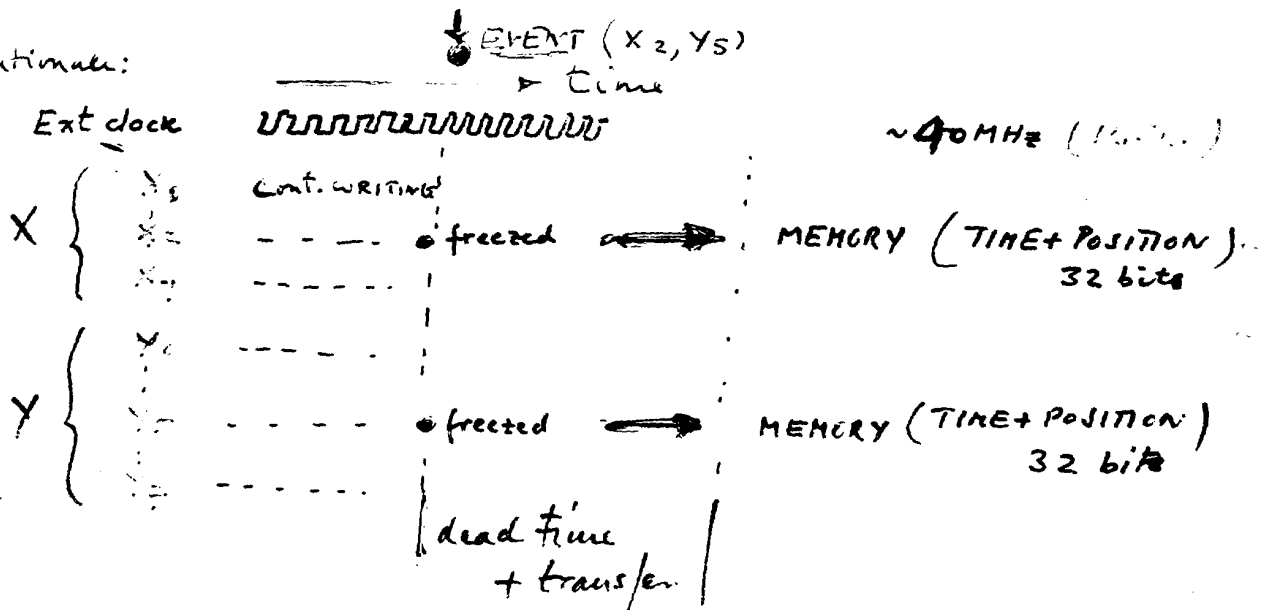 EVENT (X2, Y5)
time
Ext clock ~40MHz
X
cont. WRITING
X2 freezed MEMORY (TIME + POSITION)
32 bits
Y
freezed MEMORY (TIME + POSITION)
32 bits
dead time
+ transfer